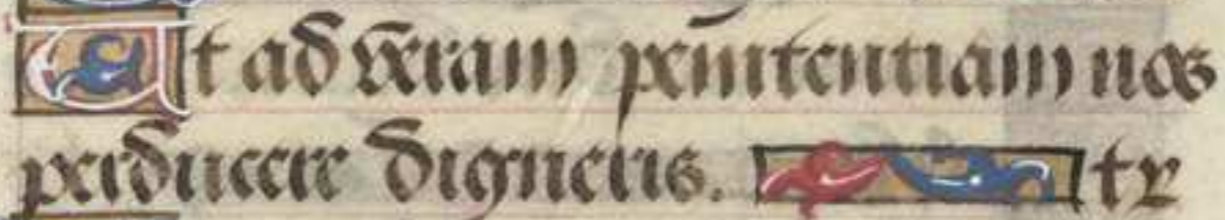 Ut ad veram penitentiam nos
perducere digneris. tr